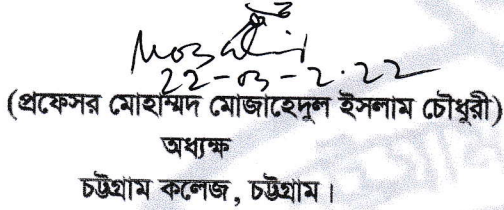 22-03-2022
(প্রফেসর মোহাম্মদ মোজাহেদুল ইসলাম চৌধুরী)
অধ্যক্ষ
চট্টগ্রাম কলেজ, চট্টগ্রাম।